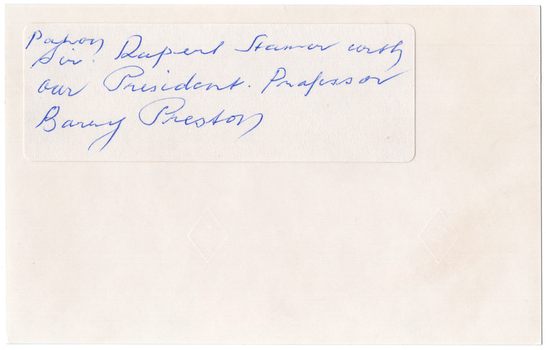 Patron
Sir. Rupert Hamer with
our President. Professor
Barry Preston